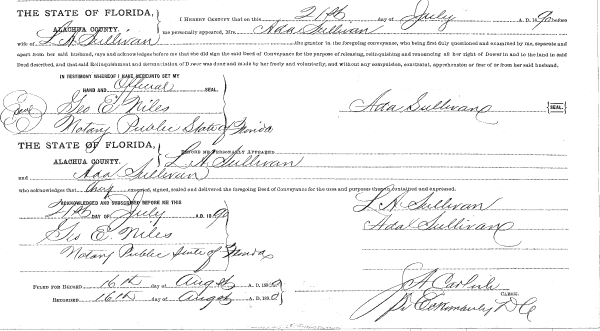 THE STATE OF FLORIDA,
ALACHUA COUNTY.
I HEREBY CERTIFY that on this 21st day of July A. D. 1890 before
me personally appeared, Mrs. Ada Sullivan
wife of L. H. Sullivan the grantor in the foregoing conveyance, who being first duly questioned and examined by me, separate and
apart from her said husband, says and acknowledges before me that she did sign the said Deed of Conveyance for the purpose of releasing, relinquishing and renouncing all her right of Dower in and to the land in said
Deed described, and that said Relinquishment and renunciation of Dower was done and made by her freely and voluntarily, and without any compulsion, constraint, apprehension or fear of or from her said husband.
IN TESTIMONY WHEREOF I HAVE HEREUNTO SET MY
HAND AND Official SEAL.
Seal
Geo E. Niles
Notary Public State of Florida
Ada Sullivan {SEAL}
THE STATE OF FLORIDA,
ALACHUA COUNTY.
BEFORE ME PERSONALLY APPEARED L. H. Sullivan
and Ada Sullivan
who acknowledges that they executed, signed, sealed and delivered the foregoing Deed of Conveyance for the uses and purposes therein contained and expressed.
ACKNOWLEDGED AND SUBSCRIBED BEFORE ME THIS
21st DAY OF July A. D. 1890
Geo E. Niles
Notary Public State of Florida
L. H. Sullivan
Ada Sullivan
FILED FOR RECORD 16th day of Augst A. D. 1890
RECORDED 16th day of Augst A. D. 1890
CLERK.
D.C.